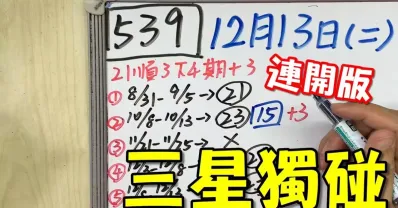 539 12月13日(二)
21順3下4期+3
連開版
① 8/31-9/5→21
② 10/8-10/13→23 15 +3
③ 11/21-11/25→×
三星獨碰